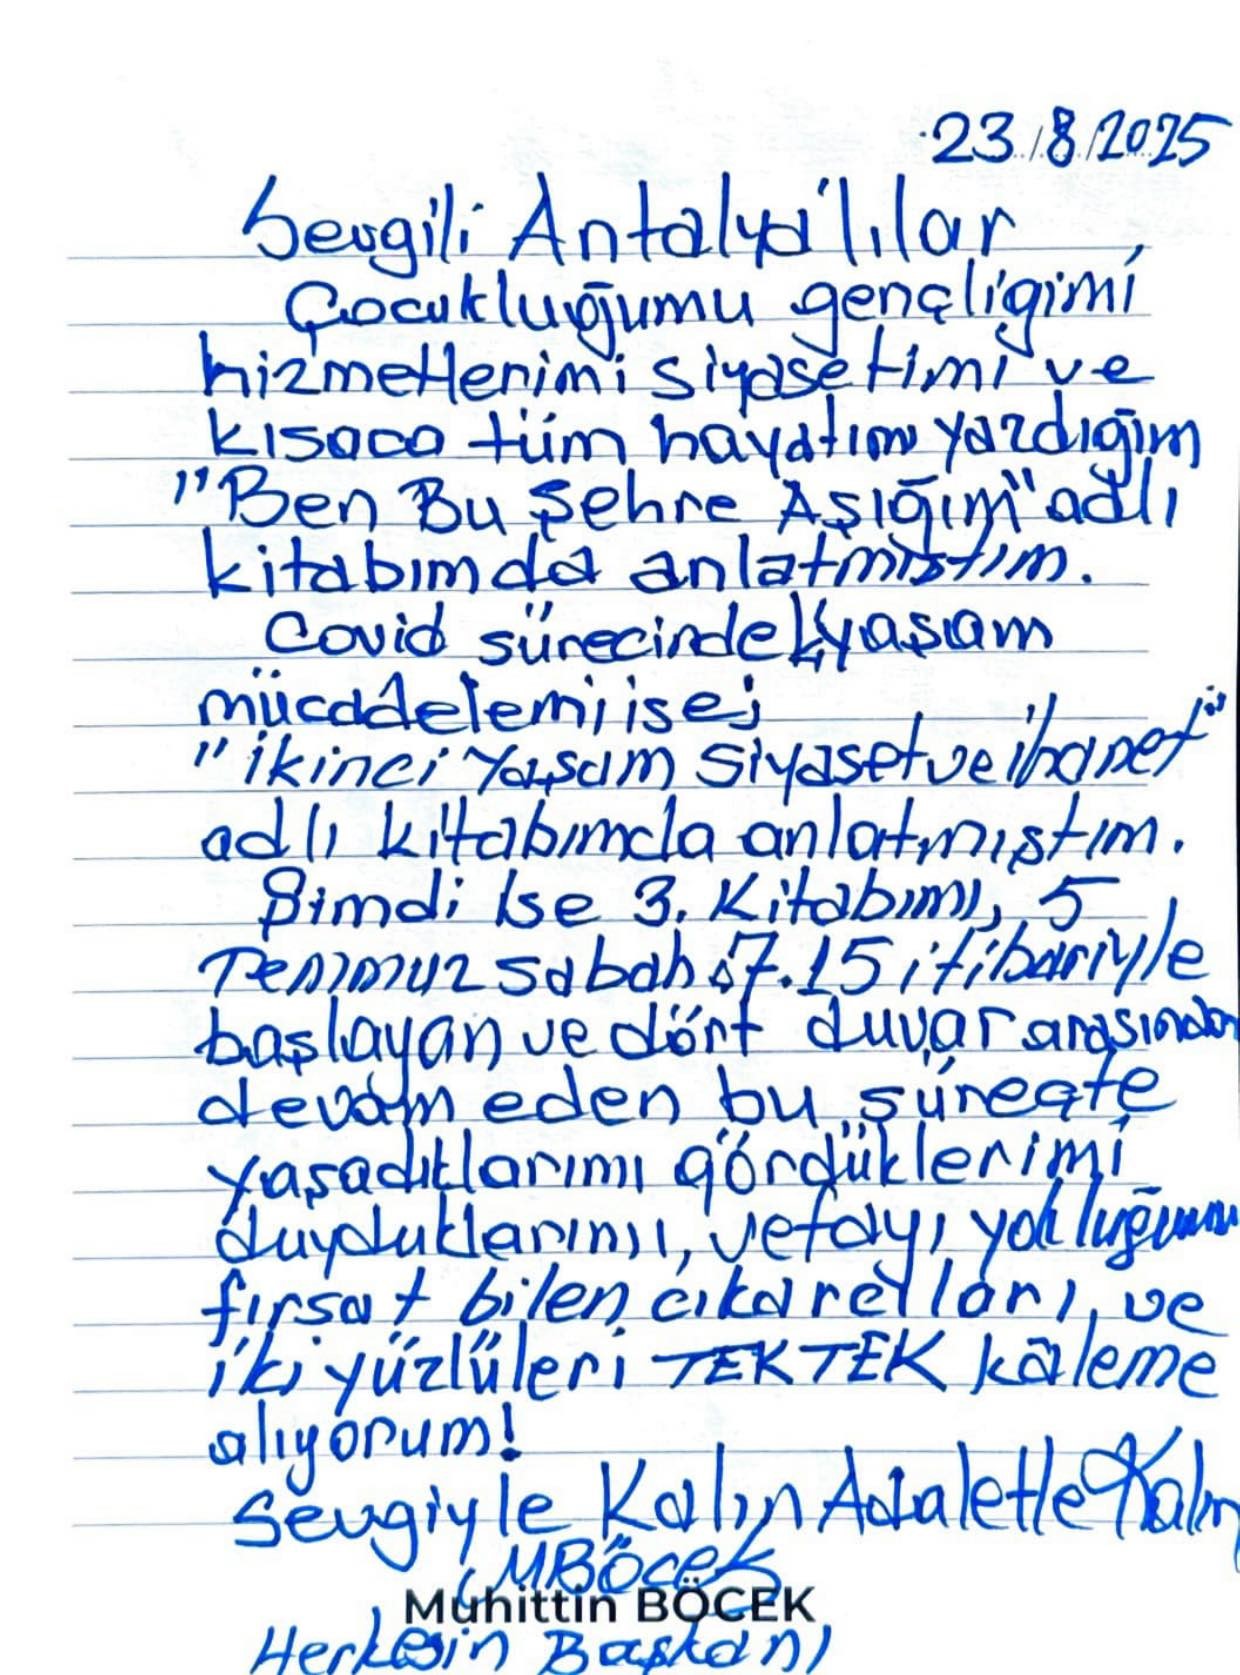 23/8/2025
Sevgili Antalya'lılar
Çocukluğumu gençligimi
hizmetlerimi siyasetimi ve
kısaca tüm hayatımı yazdığım
"Ben Bu Şehre Aşığım" adlı
kitabımda anlatmıştım.
Covid sürecindeki yaşam
mücadelemi ise;
"ikinci Yaşam Siyaset ve ihanet"
adlı kitabımda anlatmıştım.
Şimdi İse 3. Kitabımı, 5
Temmuz sabah 07.15 itibariyle
başlayan ve dört duvar arasından
devam eden bu süreçte
yaşadıklarımı gördüklerimi
duyduklarımı, vefayı yokluğumu
fırsat bilen cıkarcıları, ve
iki yüzlüleri TEK TEK kaleme
alıyorum!
Sevgiyle Kalın Adaletle Kalın
MBöcek
Muhittin BÖCEK
Herkesin Başkanı